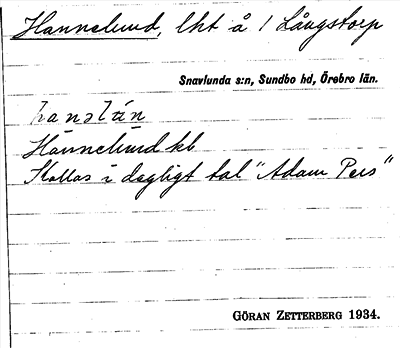 Hannelund, lht å 1 Långstorp
Snavlunda s:n, Sundbo hd, Örebro län.
hanəlun
Hannelund kb
Kallas i dagligt tal "Adam Pers"
GÖRAN ZETTERBERG 1934.